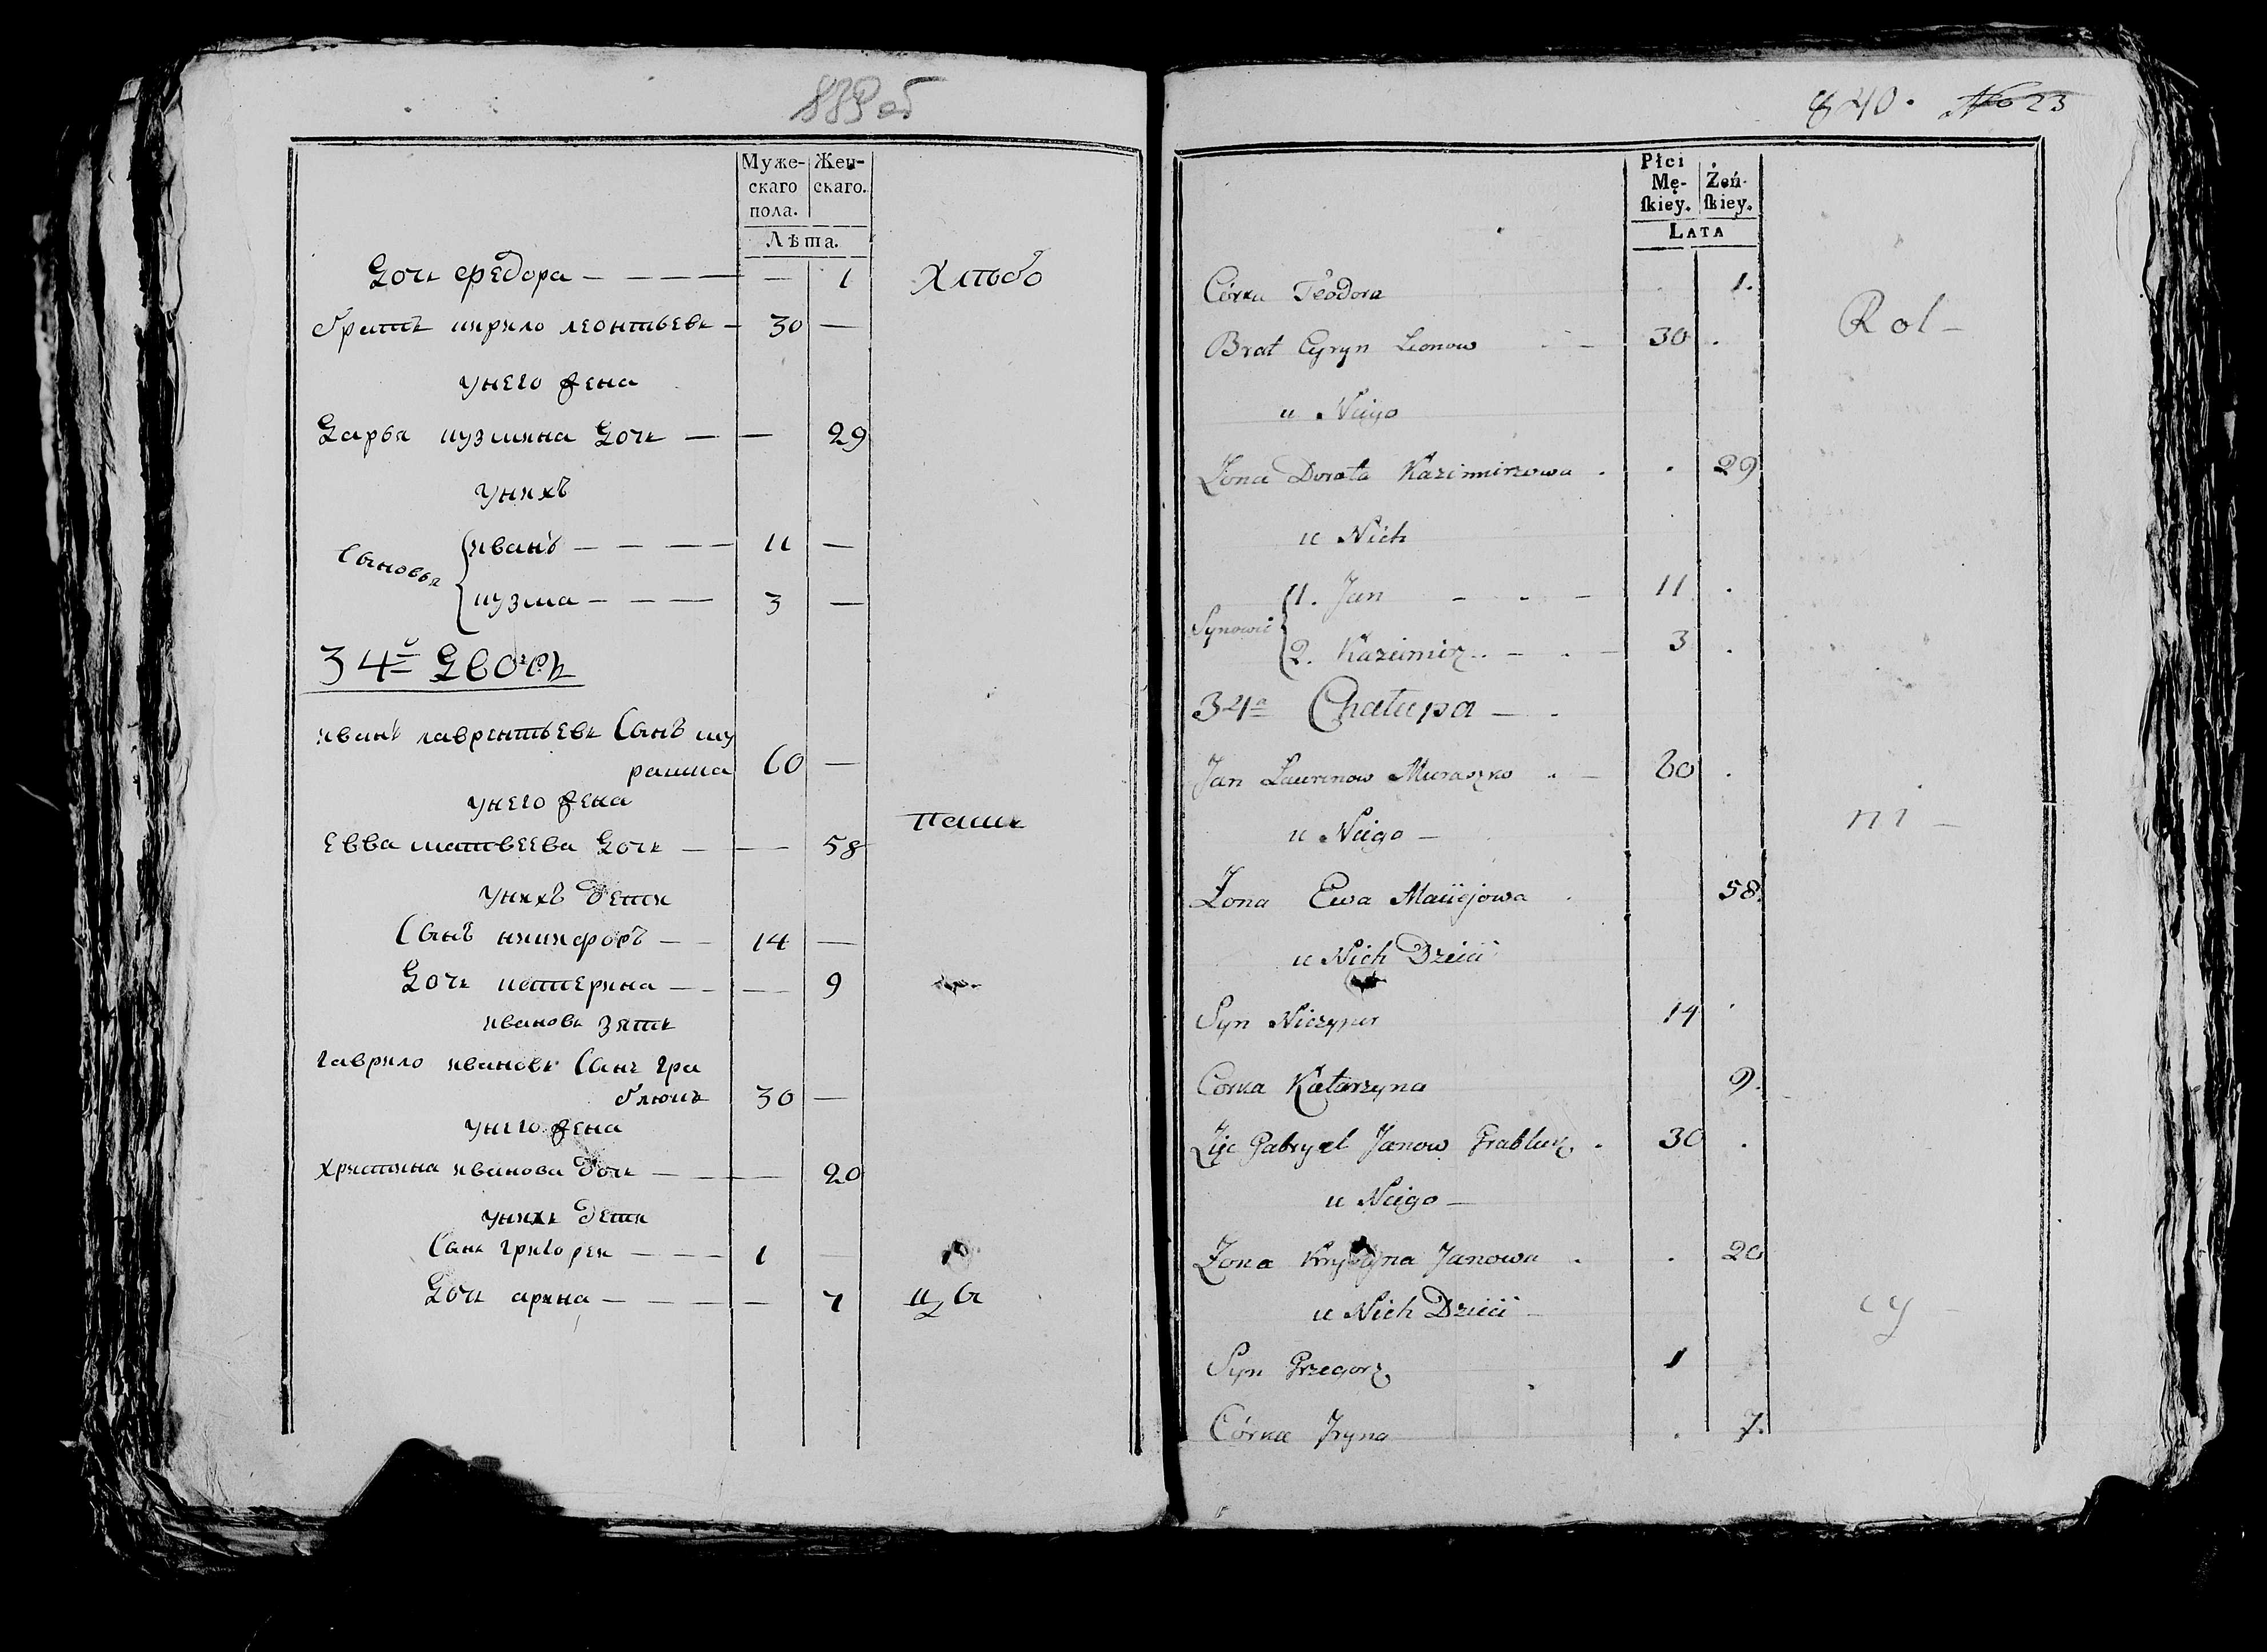 839 об
Муже-
скаго
пола.
Жен-
скаго.
Лѣта.
Дочь федора — — — — — 1 Хлѣбо
братъ кирило леонтьевъ — 30 —
унего жена
Дарья кузмина дочь — — 29
унихъ
Сыновья
иванъ — — — — 11 —
кузма — — — 3 —
34й Дворъ
иванъ лаврентьевъ Сынъ му
рашка 60 —
унего жена
паш
Евва матвеева дочь — — 58
унихъ дети
Сынъ никифоръ — — 14 —
Дочь катерина — — — 9
ивановъ зять
гаврило ивановъ Сынъ гра
блюкъ 30 —
унего жена
христина иванова дочь — — 20
унихъ дети
Сынъ григореи — — — 1 —
Дочь арина — — — — 7 цы
840. No 23
Płci
Mę-
skiey.
Żeń-
skiey.
LATA
Córka Teodora . 1.
Rol-
Brat Cyryn Leonow - - 30 .
u Niego
Zona Dorota Kazimirzowa . . 29
u Nich
Synowie
1. Jan - - - 11 .
2. Kazimirz . - . - 3 .
34a Chałupa - .
Jan Laurenow Muraszko . - 60 .
u Niego -
ni -
Zona Ewa Maciejowa . 58.
u Nich Dzieci
Syn Niczypor 14 .
Corka Katarzyna 9.
Zię Gabryel Janow Grabluk . 30 .
u Niego -
Zona Krystyna Janowa . . 20
u Nich Dzieci -
cy -
Syn Grzegorz 1
Córka Jryna . 7.